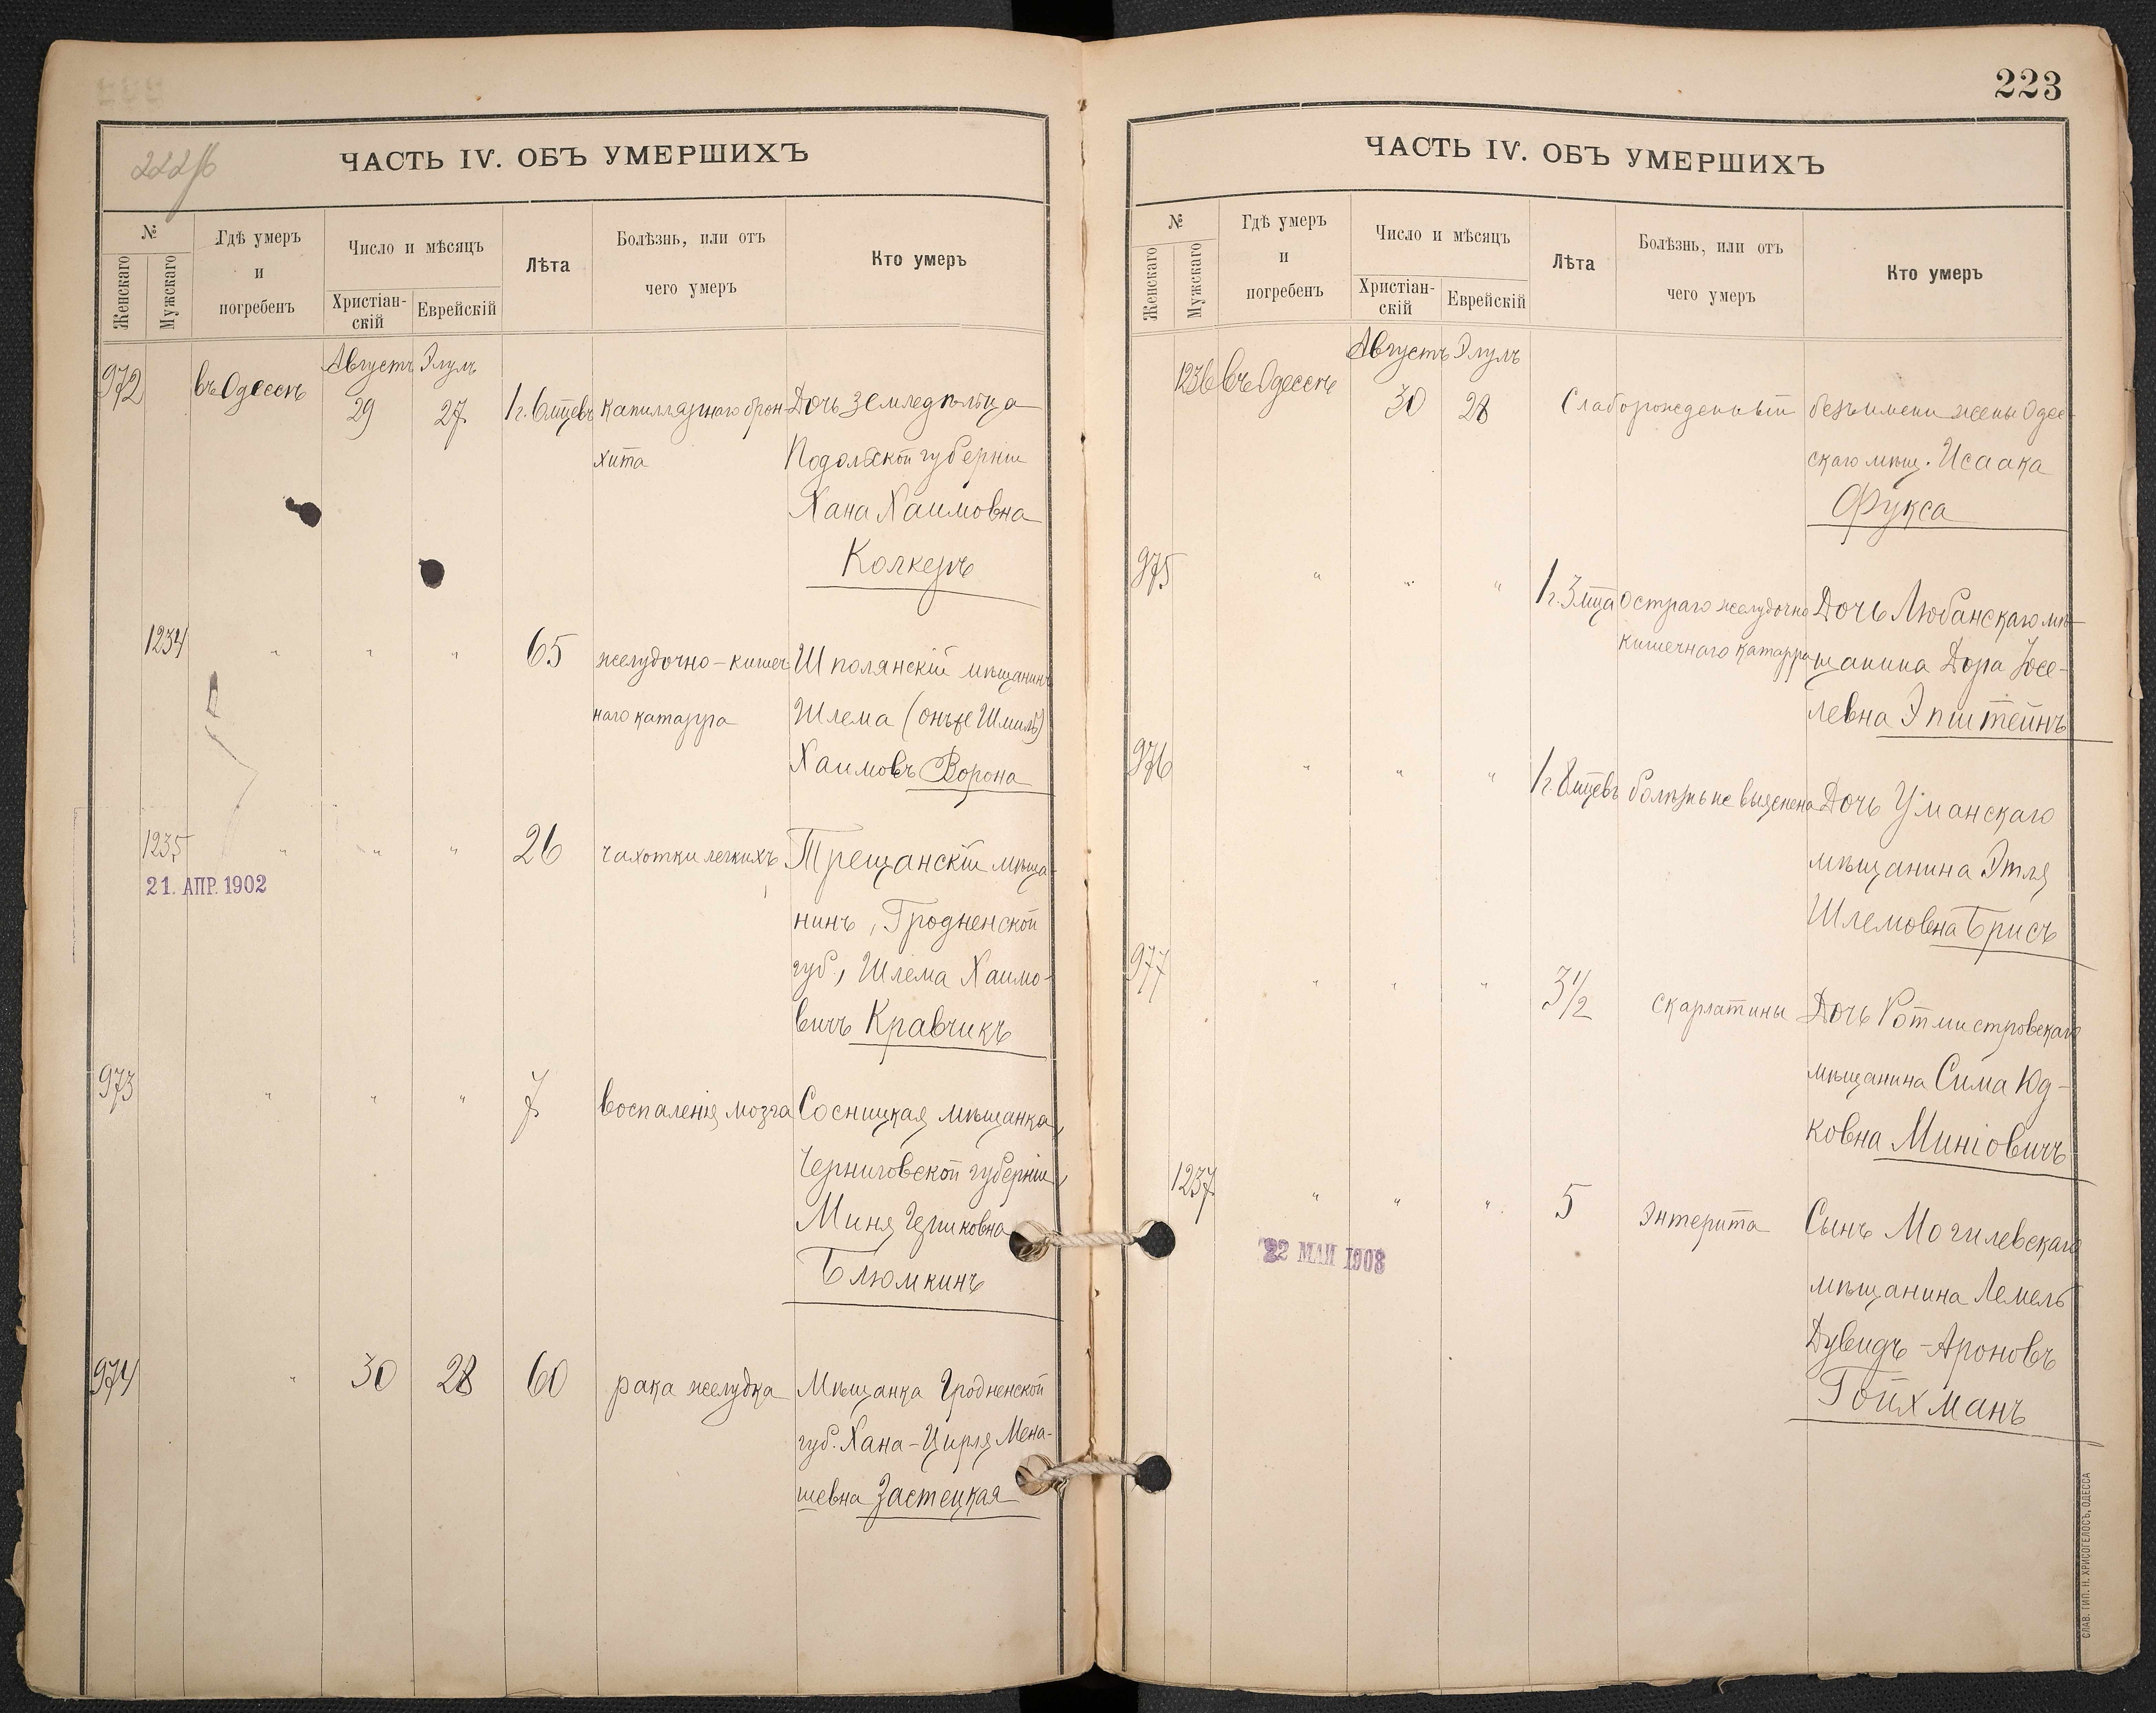 222об
ЧАСТЬ IV. ОБЪ УМЕРШИХЪ
№
Женскаго
Мужскаго
Гдѣ умеръ
и
погребенъ
Число и мѣсяцъ
Христіан-
скій
Еврейскій
Лѣта
Болѣзнь, или отъ
чего умеръ
Кто умеръ
972
въ Одессѣ
Августъ Элулъ
29 27
1 г. 6 мцевъ
капиллярнаго брон-
хита
Дочь земледѣльца
Подольской губерніи
Хана Хаимовна
Колкеръ
1234
" " "
65
желудочно-кишеч
наго катарра
Шполянскій мѣщанинъ
Шлема (онъ же Шмиль)
Хаимовъ Ворона
1235
21. АПР. 1902
" " "
26
чахотки легкихъ
Трещанскій мѣща-
нинъ, Гродненской
губ., Шлема Хаимо-
вичъ Кравчикъ
973
" " "
7
воспаленія мозга
Сосницкая мѣщанка,
Черниговской губерніи,
Миня
Блюмкинъ
974
"
30 28
60
рака желудка
Мѣщанка Гродненской
губ. Хана-Цирля Мена-
шевна Застецкая
223
ЧАСТЬ IV. ОБЪ УМЕРШИХЪ
№
Женскаго
Мужскаго
Гдѣ умеръ
и
погребенъ
Число и мѣсяцъ
Христіан-
скій
Еврейскій
Лѣта
Болѣзнь, или отъ
чего умеръ
Кто умеръ
1236
въ Одессѣ
Августъ Элулъ
30 28
Слаборожденный
безъ имени жены Одес-
скаго мѣщ. Исаака
Фукса
975
" " "
1 г. 3 мца
остраго желудочно
кишечнаго катарра
Дочь Любанскаго мѣ-
щанина Дора Іосе-
левна Эпштейнъ
976
" " "
1 г. 8 мцевъ
болѣзнь не выяснена
Дочь Уманскаго
мѣщанина Этля
Шлемовна Брисъ
977
" " "
3½
скарлатины
Дочь Ротмистровскаго
мѣщанина Сима Юд-
ковна Миніовичъ
1237
" " "
22 МАЯ 1908
5
энтерита
Сынъ Могилевскаго
мѣщанина Лемель
Дувидъ-Ароновъ
Гойхманъ
СЛАВ. ТИП. Н. ХРИСОГЕЛОСЪ, ОДЕССА